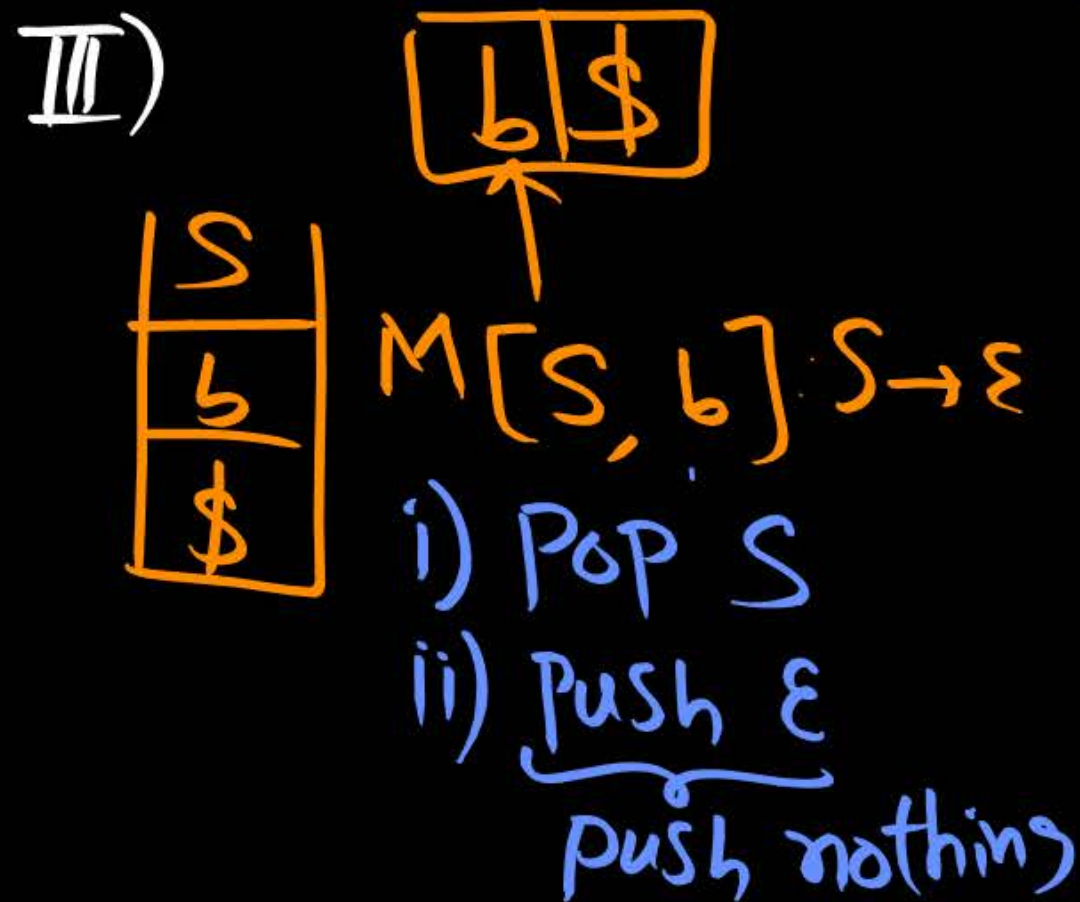 III)
b $
S
b
$
M[S, b] S→ε
i) POP S
ii) Push ε
push nothing